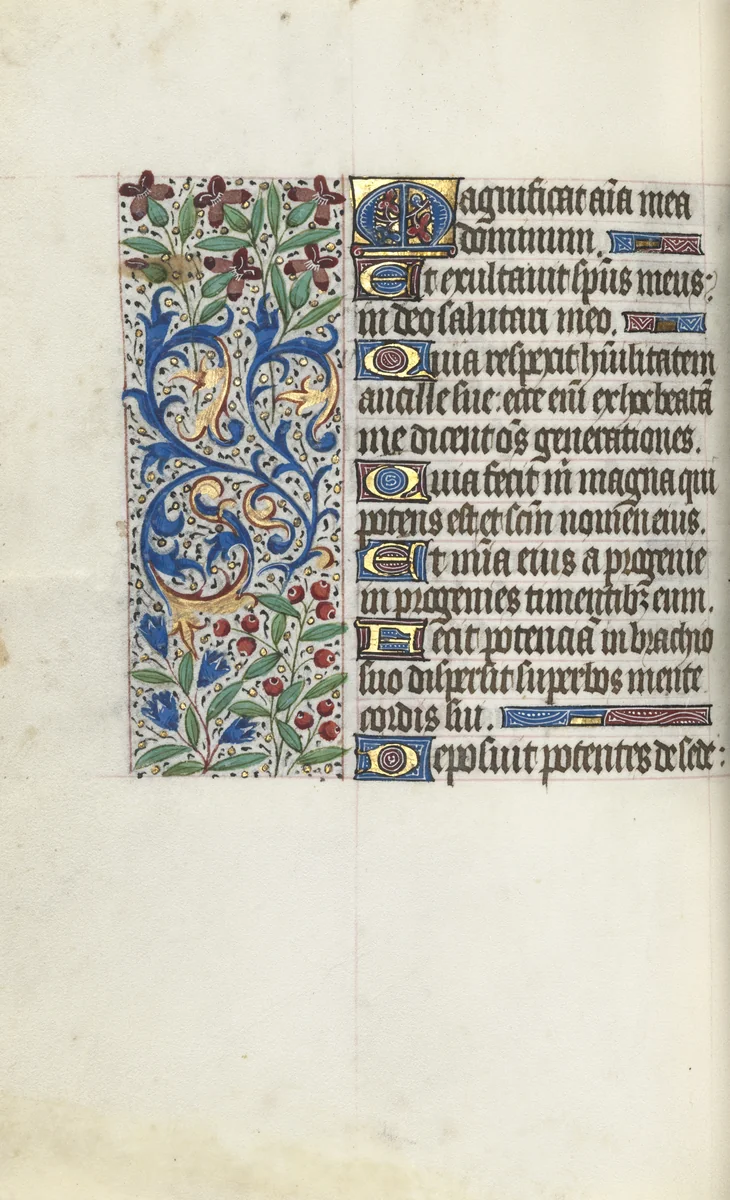 Magnificat aīa mea
dominum.
Et exultauit sp̄us meus:
in deo salutari meo.
Quia respexit hūilitatem
ancille sue: ecce eni̅ ex hoc beatā
me dicent oēs generationes.
Quia fecit m̄ magna qui
potens est et scm̄ nomen eius.
Et mīa eius a progenie
in progenies timentibꝫ eum.
Fecit potenciā in brachio
suo dispersit superbos mente
cordis sui.
Deposuit potentes de sede: